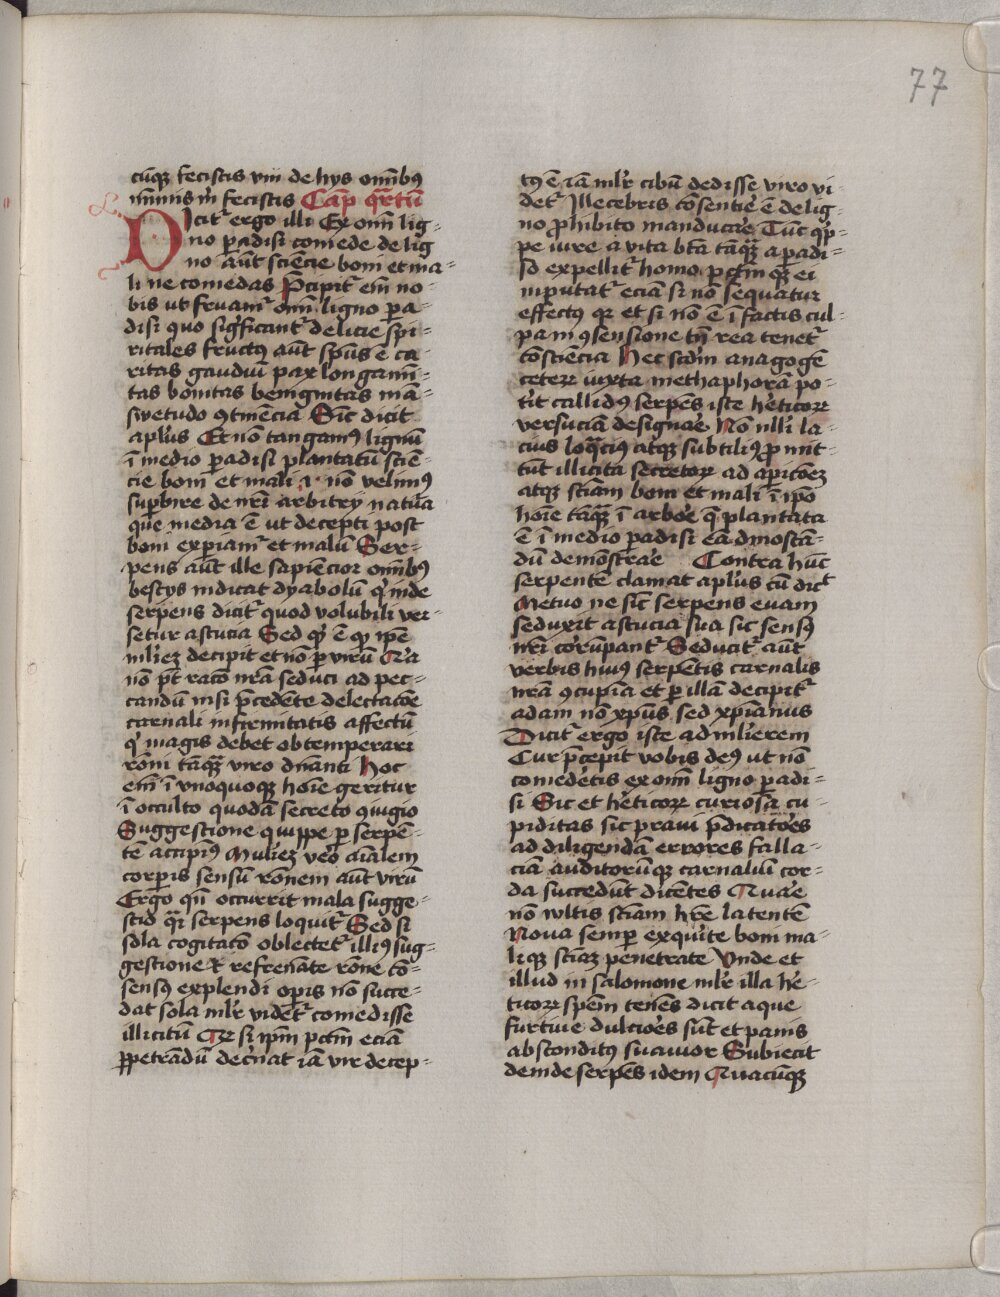 77
cūqꝫ fecistis vni de hys omībꝯ
minimis m̄ fecistis Cap̄ q̄rtū
Dicit᷑ ergo illi Ex om̄i lig-
no ꝑadisi comede de lig
no aūt sciēcie boni et ma-
li ne comedas P̄cipit᷑ em̄ no-
bis ut fruam᷑ om̄i ligno ꝑa-
disi quo sigficant᷑ delicie spi-
ritales fructꝯ aūt spūs ē ca-
ritas gaudiū pax longami-
tas bonitas benignitas mā-
swetudo ꝯtinēcia Sic̄ dicit
aplūs Et nō tangamꝯ lignū
ī medio ꝑadisi plantatū sciē-
cie boni et mali .i. nō velimꝯ
suꝑbire de nr̄i arbitry natura
que media ē ut decepti post
boni expiam᷑ et malū Ser-
pens aūt ille sapiencior omībꝯ
bestys indicat dyabolū q' inde
serpens dicit᷑ quod volubili ver-
setur astucia Sed q' ē qꝫ ipē
mlīeꝫ decipit et nō ꝑ virū Nā
nō pt̄ racō nr̄a seduci ad pec-
candū nisi p̄cedēte delectacōe
carnali infirmitatis affectū
q' magis debet obtemperari
rōni tāqꝫ viro dn̄anti Hoc
em̄ ī vnoquoqꝫ hoīe geritur
ī occulto quodā secreto ꝯiugio
Suggestione quippe ꝑ serpē-
tē accipiꝯ Mulieꝫ vero aīalem
corꝑis sensū rōnem aūt virū
Ergo qn̄ occurrit mala sugge-
stio q̄i serpens loquit᷑ Sed si
sola cogitacō oblectet᷑ illiꝯ sug-
gestione ⁊ refrenāte rōne cō-
sensꝯ explendi oꝑis nō succe-
dat sola mlr̄ videt᷑ comedisse
illicitū Qꝛ si ipm̄ pctm̄ eciā
ꝑpetrādū dec̄nat iā vir decep-
tꝯ ē iā mlr̄ cibū dedisse viro vi-
det᷑ Illecebris cōsentire ē de lig-
no ꝓhibito manducare Tūc q'p-
pe iure a vita btā tāqꝫ a ꝑadi-
so expellit᷑ homo pctm̄qꝫ ei
inputat᷑ eciā si nō sequatur
effectꝯ qꝛ et si nō ē ī factis cul-
pam ꝯsensione tn̄ rea tenet᷑
cōsciēcia Hec scd̄m anagogē
ceteꝝ iuxta methaphorā po-
t̄it callidꝯ serpēs iste h̄eticoꝝ
versuciā designare Nō nlli la-
cius loq̄ciꝯ atqꝫ subtiliꝯ ꝓmit-
tūt illicita secretoꝝ ad aꝑicōeꝫ
atqꝫ sciam boni et mali ī ipō
hoīe tāqꝫ ī arbore q̄ plantata
ē ī medio ꝑadisi eā dinoscā-
dū demōstrare Contra hūc
serpentē clamat aplūs cū dict
Metuo ne sic̄ serpens euam
seduxit astucia sua sic sensꝯ
nr̄i corrūpant᷑ Seducit᷑ aūt
verbis huiꝯ serpētis carnalis
nr̄a ꝯcupīa et ꝑ illā decipit᷑
adam nō xp̄us sed xp̄ianus
Dicit ergo iste ad mlīerem
Cur p̄cepit vobis deꝯ ut nō
comedetis ex om̄i ligno ꝑadi-
si Sic et h̄eticoꝝ curiosa cu-
piditas sic praui p̄dicatōes
ad diligendā errores falla-
ciā auditorūqꝫ carnaliū cor-
da succedūt dicētes Quare
nō wltis sciam h̄re latentē
Noua semꝑ exquirite boni ma-
liqꝫ sciaꝫ penetrate Vnde et
illud in salomone mlr̄ illa he-
ticoꝝ spēm tenēs dicit aque
furtiue dulciores sūt et panis
absconditꝯ suauior Subiecit
deinde serpēs idem Quacūqꝫ